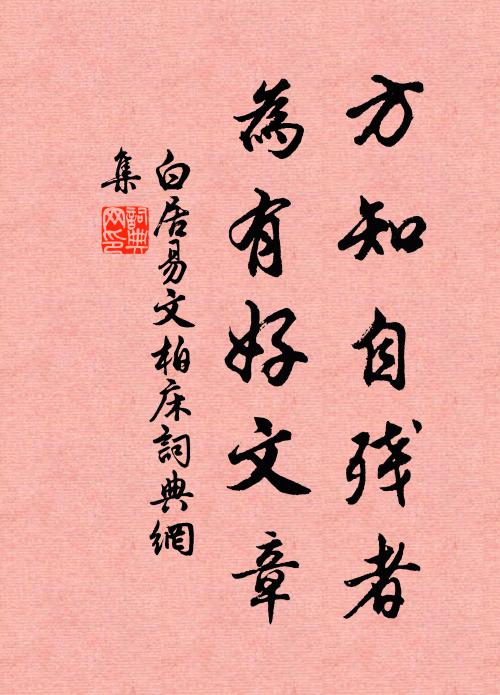 方知自残者
為有好文章
白居易文柏床詞典網
集
詞典
网印